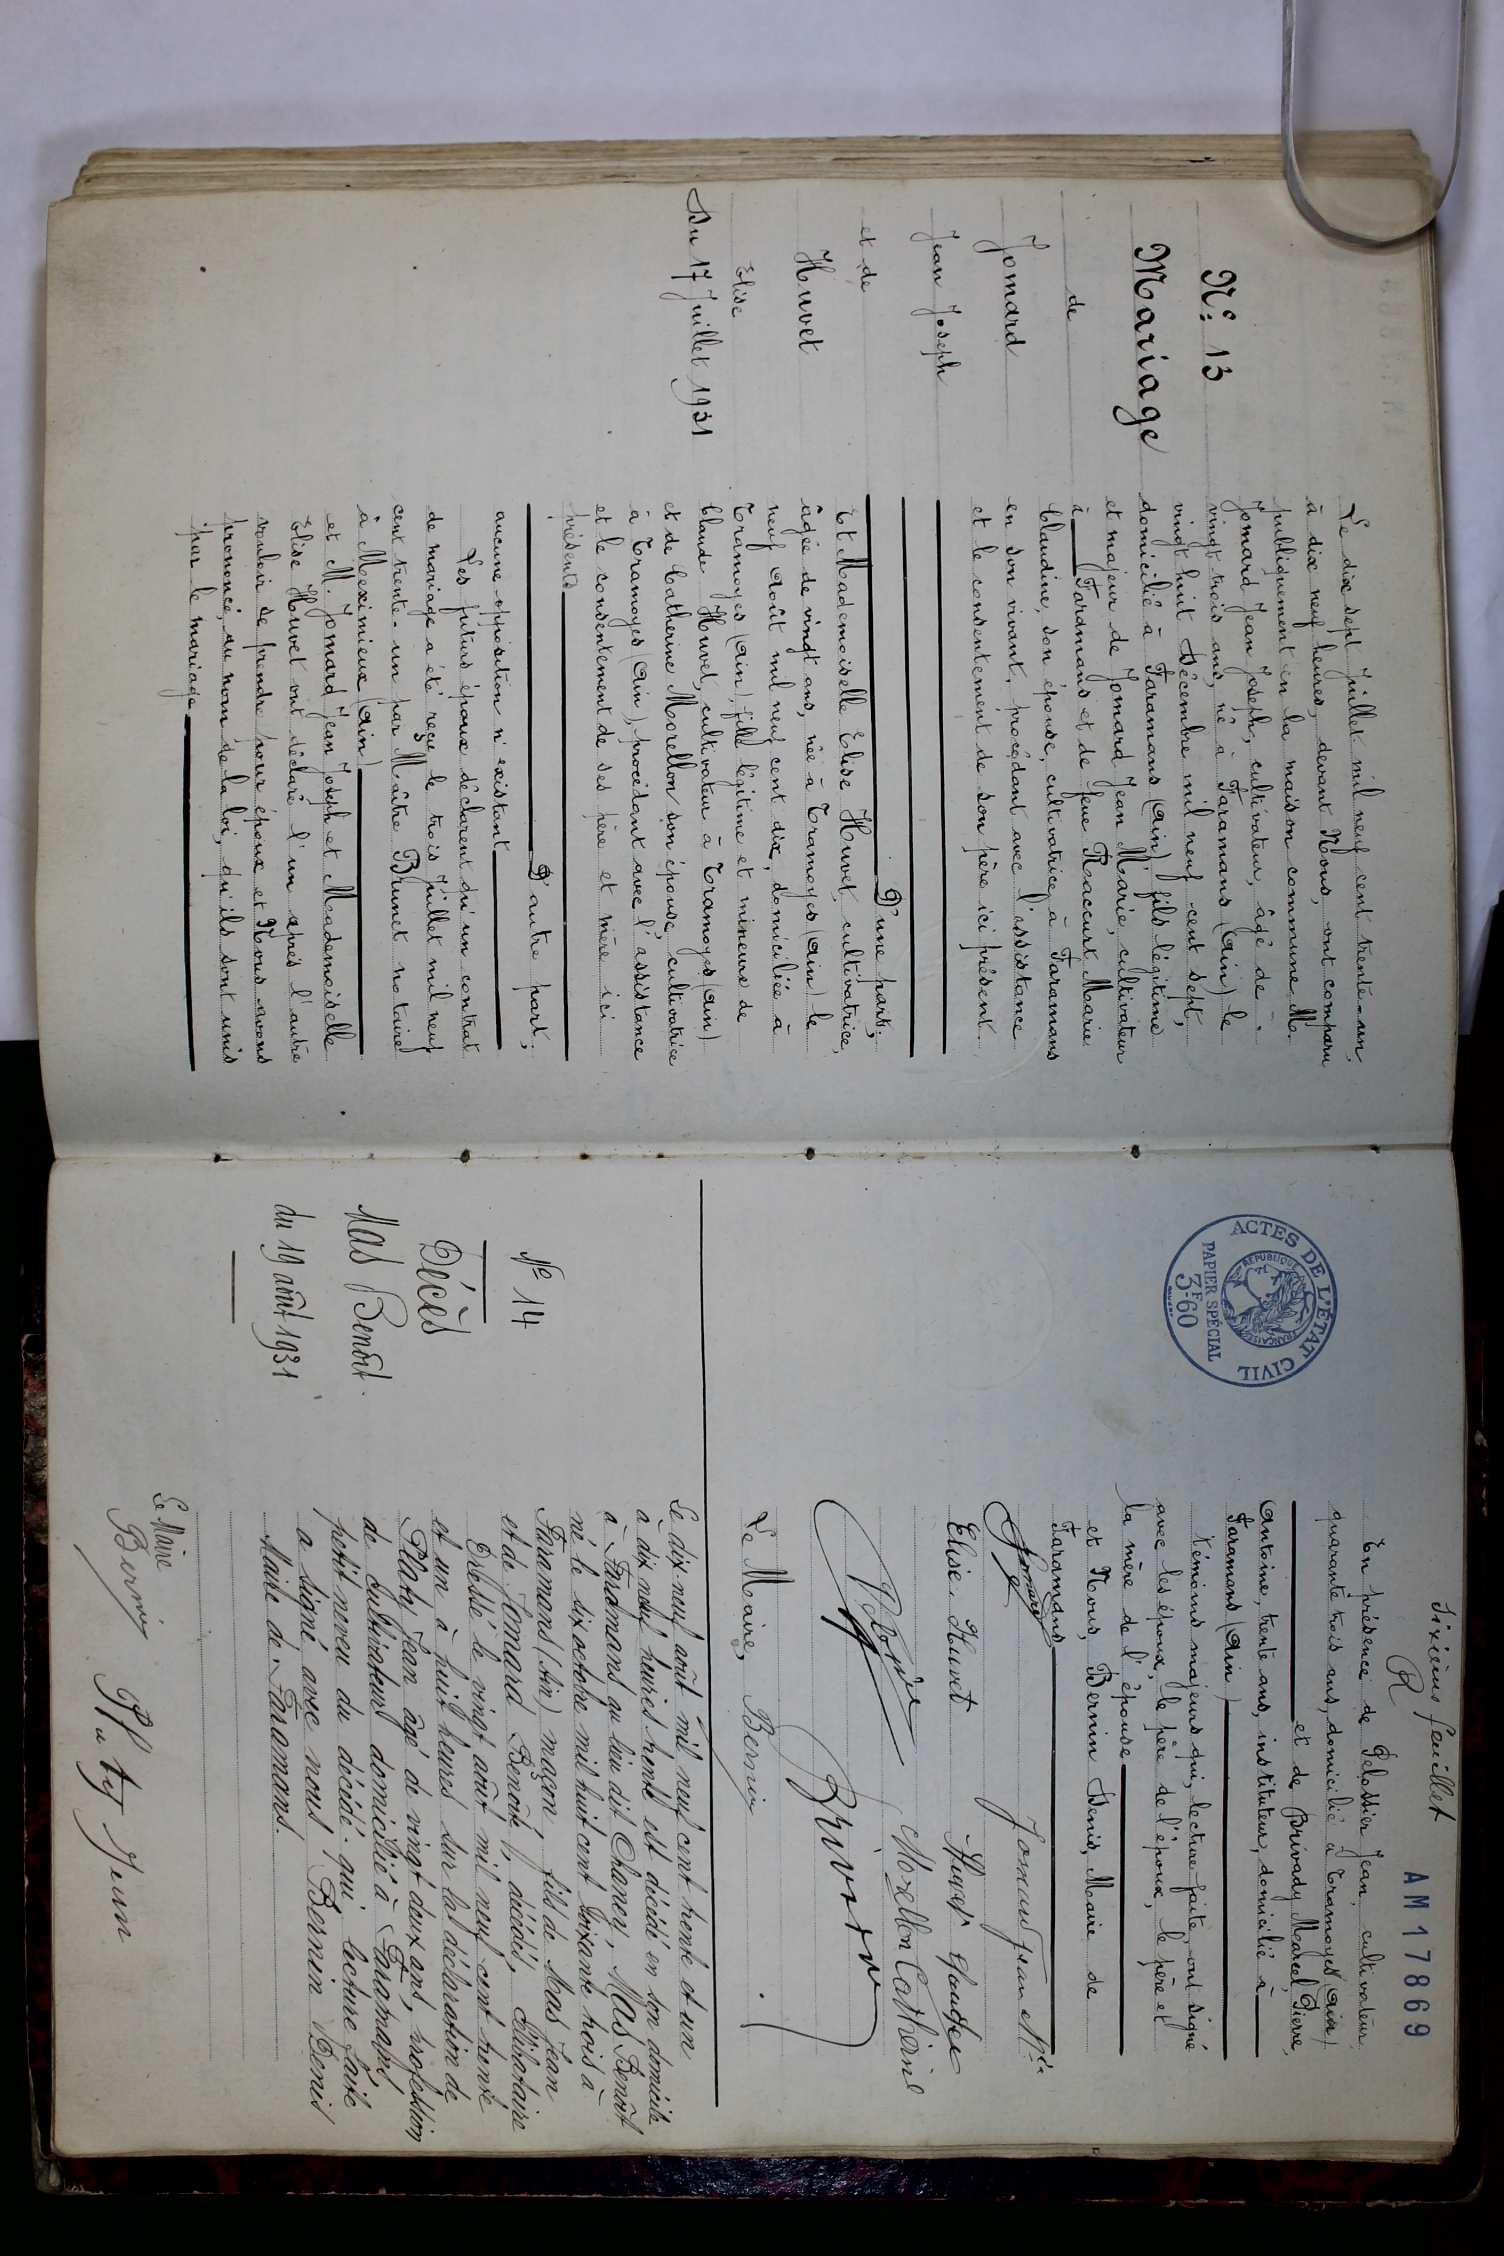 N° 13
Mariage
de
Jomard
Jean Joseph
et de
Huvet
Elise
Du 17 Juillet 1931
Le dix sept Juillet mil neuf cent trente-un,
à dix neuf heures, devant Nous, ont comparu
publiquement en la maison commune M.
Jomard Jean Joseph, cultivateur, âgé de
vingt trois ans, né à Faramans (Ain) le
vingt huit Décembre mil neuf cent sept,
domicilié à Faramans (Ain) fils légitime
et majeur de Jomard Jean Marie, cultivateur
à Faramans et de feue Raccurt Marie
Claudine, son épouse, cultivatrice à Faramans
en son vivant, procédant avec l'assistance
et le consentement de son père ici présent.
D'une part;
Et Mademoiselle Elise Huvet, cultivatrice,
âgée de vingt ans, née à Tramoyes (Ain) le
neuf Août mil neuf cent dix, domiciliée à
Tramoyes (Ain), fille légitime et mineure de
Claude Huvet, cultivateur à Tramoyes (Ain)
et de Catherine Morellon son épouse, cultivatrice
à Tramoyes (Ain), procédant avec l'assistance
et le consentement de ses père et mère ici
présents
D'autre part;
aucune opposition n'existant
Les futurs époux déclarent qu'un contrat
de mariage a été reçu le trois Juillet mil neuf
cent trente-un par Maître Brunet notaire
à Meximieux (Ain)
et M. Jomard Jean Joseph et Mademoiselle
Elise Huvet ont déclaré l'un après l'autre
vouloir se prendre pour époux et Nous avons
prononcé, au nom de la loi, qu'ils sont unis
par le mariage
sixième feuillet
R
AM17869
ACTES DE L'ÉTAT CIVIL
RÉPUBLIQUE FRANÇAISE
PAPIER SPÉCIAL
3F60
En présence de Pelossier Jean, cultivateur,
quarante trois ans, domicilié à Tramoyes (Ain)
et de Brivady Marcel, Pierre,
Antoine, trente ans, instituteur, domicilié à
Faramans (Ain)
Témoins majeurs qui, lecture faite, ont signé
avec les époux, le père de l'époux, le père et
la mère de l'épouse
et Nous, Bernin Denis, Maire de
Faramans
Jomard
Jomard Jean Mie
Elise Huvet
Huvet Claude
Morellon Catherine
Le Maire, Bernin
N° 14
Décès
Mas Benoît.
du 19 août 1931
Le dix-neuf août mil neuf cent trente et un
à dix neuf heures trente est décédé en son domicile
à Faramans au lieu dit Chaney, Mas Benoît
né le six octobre mil huit cent soixante trois à
Faramans (Ain) maçon, fils de Mas Jean
et de Jomard Benoîte, décédés, Célibataire
Dressé le vingt août mil neuf cent trente
et un à huit heures sur la déclaration de
Platy Jean âgé de vingt deux ans, profession
de cultivateur domicilié à Faramans,
petit neveu du décédé. qui lecture faite
a signé avec nous, Bernin Denis
Maire de Faramans.
Le Maire
Bernin
Platy Jean